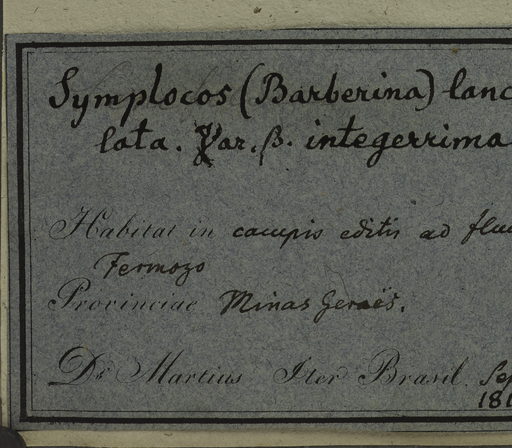 Symplocos (Barberina) lanc
lata. Var. β. integerrima
Habitat in campis editis ad flu
Fermozo
Provinciae Minas Geraës.
Dr Martius Iter Brasil. Sep
181